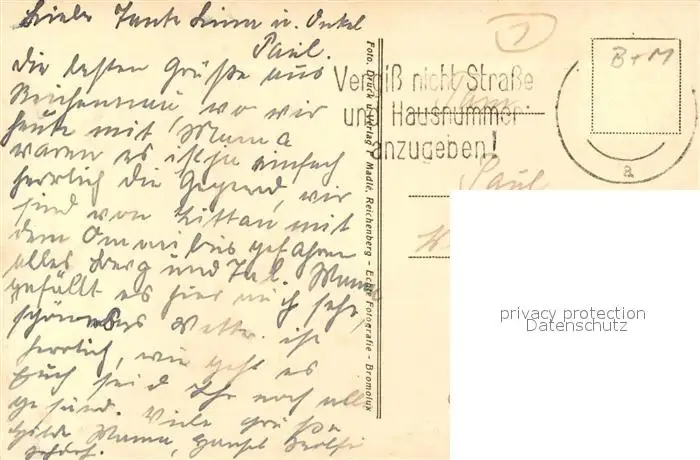 Liebe Tante Linna u. Onkel
Paul.
Die besten Grüße aus
Reichenau, wo wir
heute mit Mama
waren es ist ja einfach
herrlich die Gegend, wir
sind von Zittau mit
dem Omnibus gefahren
alles Berg und Tal. Mama
gefällt es hier auch sehr,
schönes Wetter. ist
herrlich, wie geht es
Euch seid Ihr noch alle
gesund. Viele Grüße
Hilde Mama,
Foto, Druck u. Verlag F. Madle, Reichenberg - Echte Fotografie - Bromolux
Vergiß nicht Straße
und Hausnummer
anzugeben!
a
B+M
1
Paul
privacy protection
Datenschutz